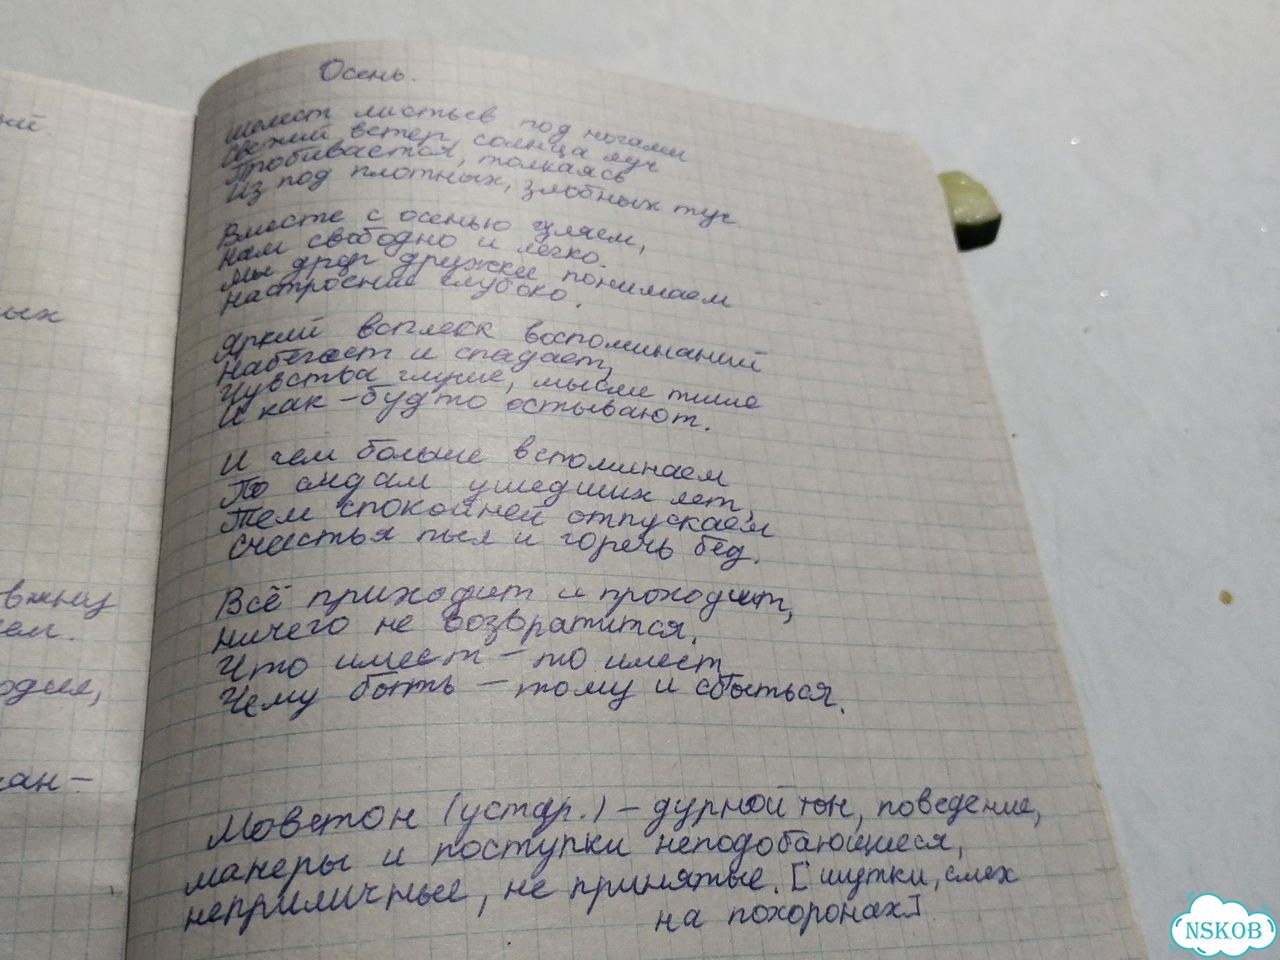 Осень.
Шелест листьев под ногами
Свежий ветер, солнца луч
Пробивается, толкаясь
Из под плотных, злобных туч.
Вместе с осенью гуляем,
Нам свободно и легко.
Мы друг дружку понимаем
Настроение глубоко.
Яркий всплеск воспоминаний
Набегает и спадает,
Чувства глуше, мысли тише
И как-будто остывают.
И чем больше вспоминаем
По следам ушедших лет,
Тем спокойней отпускаем
Счастья пыл и горечь бед.
Всё приходит и проходит,
Ничего не возвратится.
Что имеет – то имеет
Чему быть – тому и сбыться.
Моветон (устар.) – дурной тон, поведение,
манеры и поступки неподобающиеся,
неприличные, не принятые. [шутки, смех
на похоронах]
ых
ем.
ан-
NSKOB